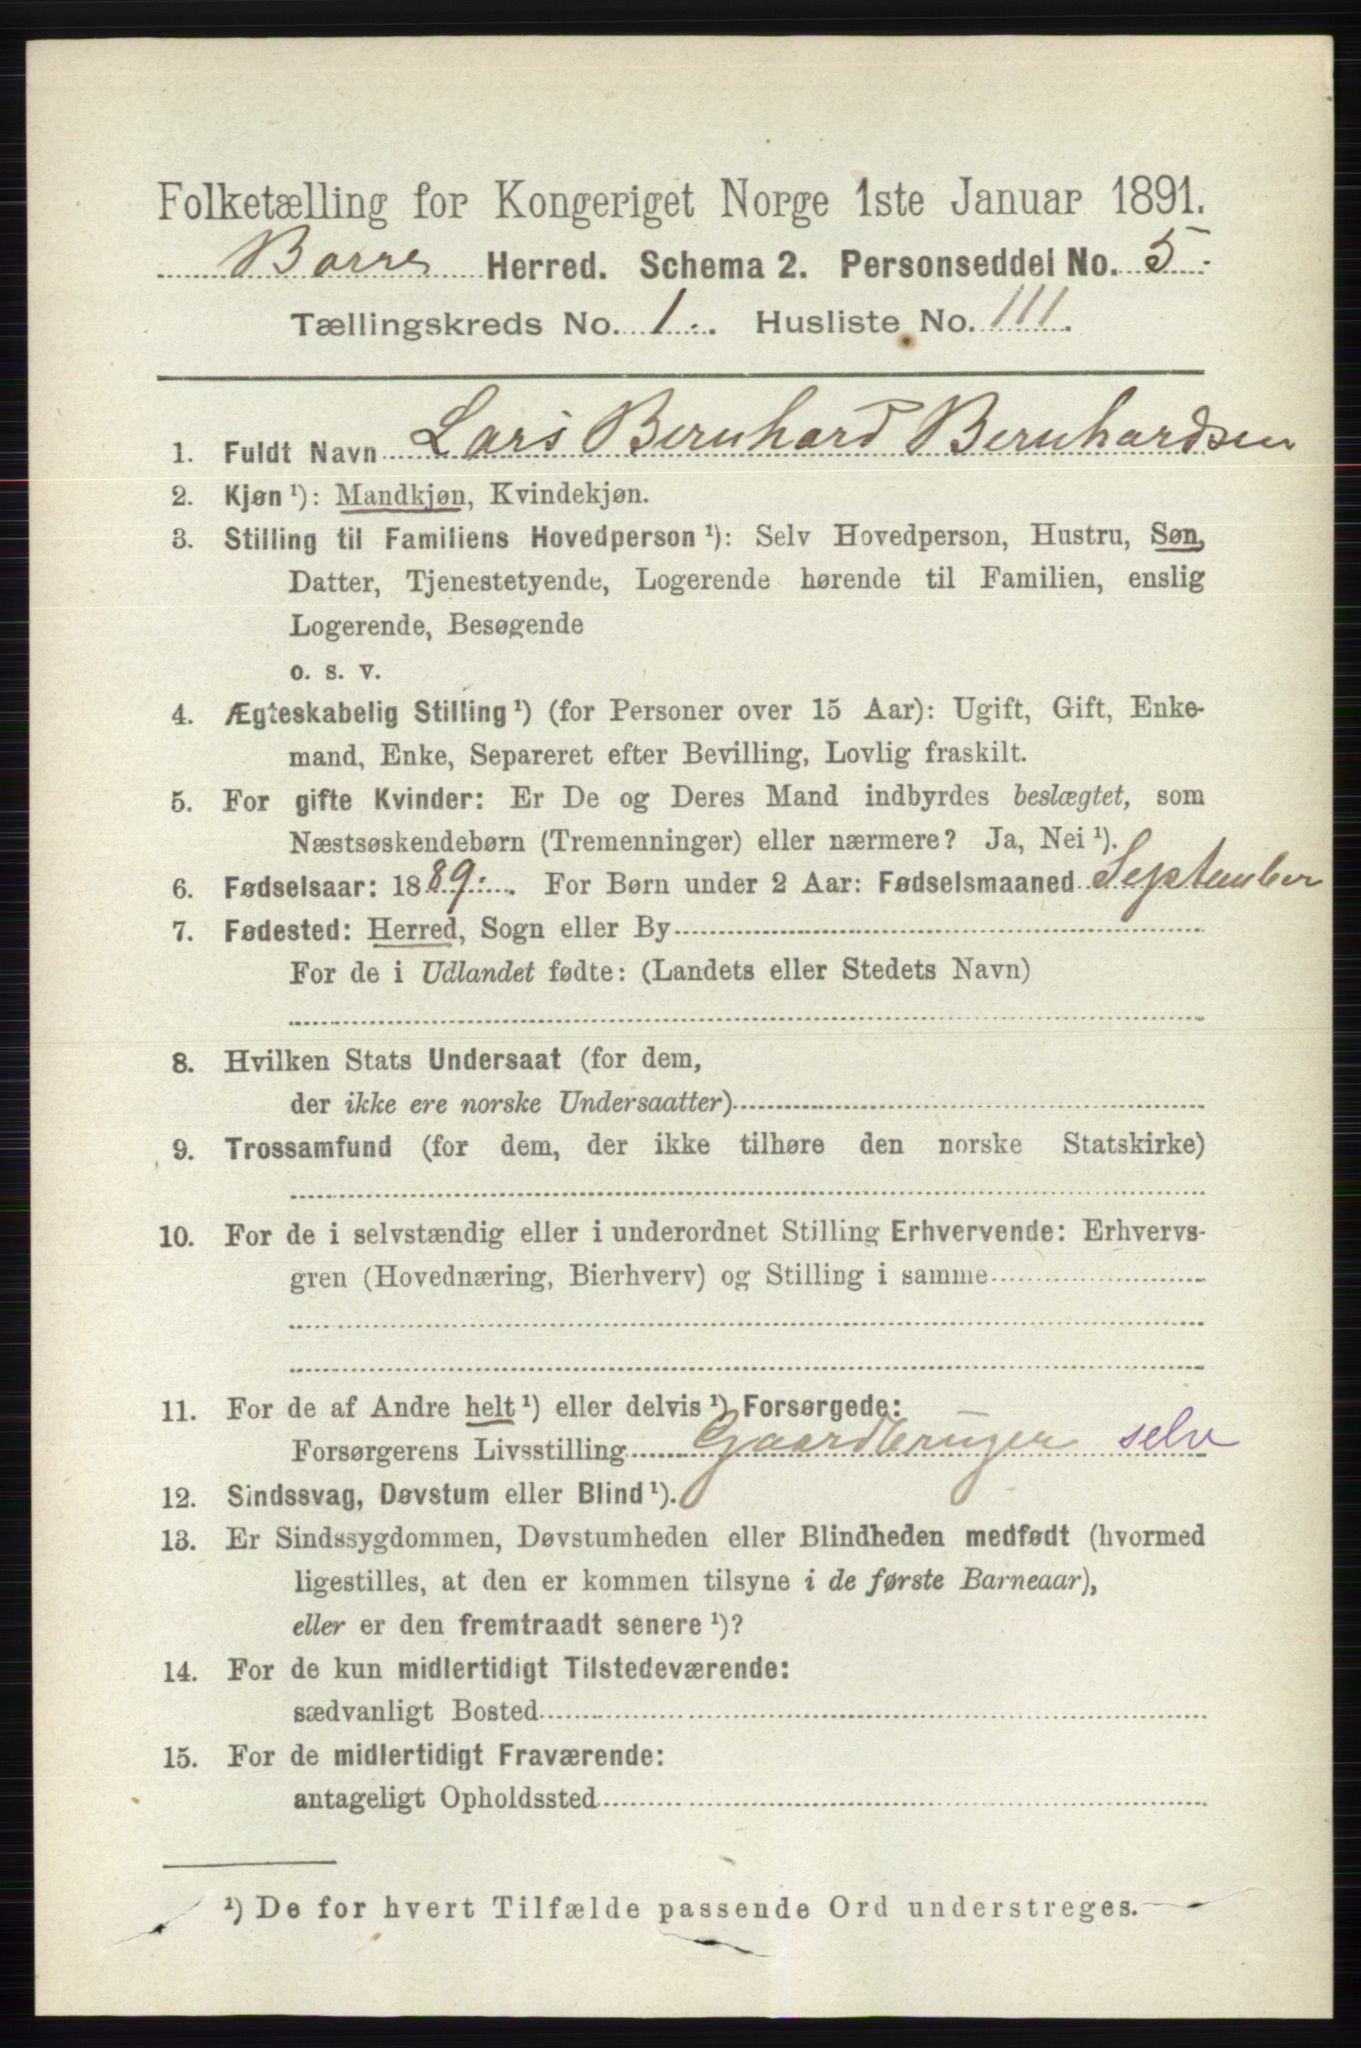 Folketælling for Kongeriget Norge 1ste Januar 1891.
Borre Herred. Schema 2. Personseddel No. 5.
Tællingskreds No. 1. Husliste No. 111.
1. Fuldt Navn Lars Bernhard Bernhardsen
2. Kjøn ¹): Mandkjøn, Kvindekjøn.
3. Stilling til Familiens Hovedperson ¹): Selv Hovedperson, Hustru, Søn,
Datter, Tjenestetyende, Logerende hørende til Familien, enslig
Logerende, Besøgende
o. s. v.
4. Ægteskabelig Stilling ¹) (for Personer over 15 Aar): Ugift, Gift, Enke-
mand, Enke, Separeret efter Bevilling, Lovlig fraskilt.
5. For gifte Kvinder: Er De og Deres Mand indbyrdes beslægtet, som
Næstsøskendebørn (Tremenninger) eller nærmere? Ja, Nei ¹).
6. Fødselsaar: 1889. For Børn under 2 Aar: Fødselsmaaned September
7. Fødested: Herred, Sogn eller By
For de i Udlandet fødte: (Landets eller Stedets Navn)
8. Hvilken Stats Undersaat (for dem,
der ikke ere norske Undersaatter)
9. Trossamfund (for dem, der ikke tilhøre den norske Statskirke)
10. For de i selvstændig eller i underordnet Stilling Erhvervende: Erhvervs-
gren (Hovednæring, Bierhverv) og Stilling i samme
11. For de af Andre helt ¹) eller delvis ¹) Forsørgede:
Forsørgerens Livsstilling Gaardbruger selv
12. Sindssvag, Døvstum eller Blind ¹).
13. Er Sindssygdommen, Døvstumheden eller Blindheden medfødt (hvormed
ligestilles, at den er kommen tilsyne i de første Barneaar),
eller er den fremtraadt senere ¹)?
14. For de kun midlertidigt Tilstedeværende:
sædvanligt Bosted
15. For de midlertidigt Fraværende:
antageligt Opholdssted
¹) De for hvert Tilfælde passende Ord understreges.